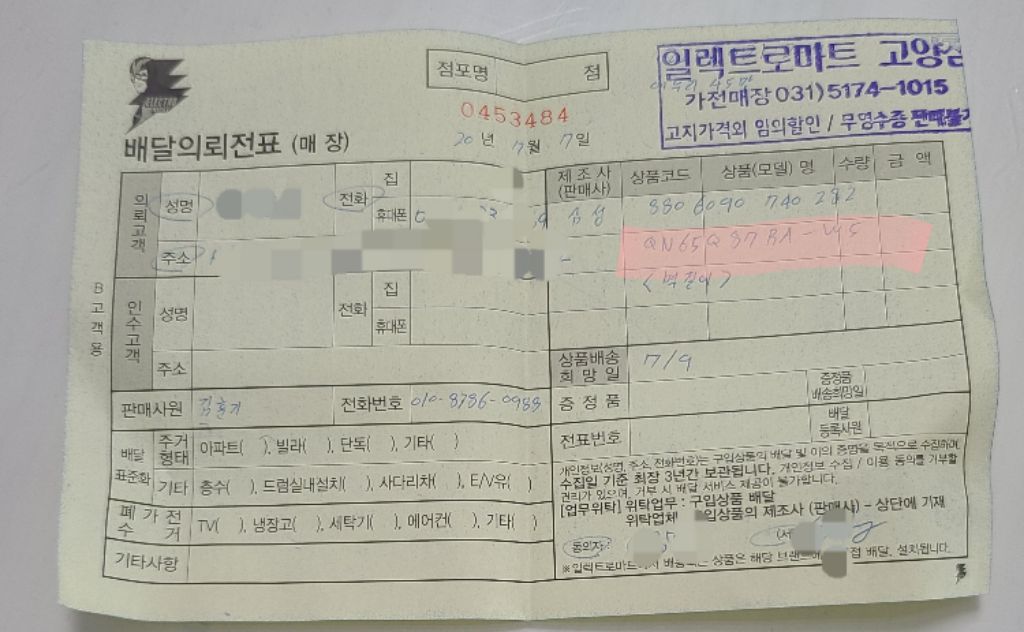 점포명 점
일렉트로마트 고양
가전매장 031)5174-1015
고지가격외 임의할인 / 무영수증 판매불가
0453484
배달의뢰전표 (매 장)
20 년 7월 7일
의뢰고객 성명 전화 집 휴대폰
주소
제조사 (판매사) 상품코드 상품(모델) 명 수량 금 액
삼성 880 6090 740 282
QN65Q87BA-W5
<벽걸이>
B 고객용
인수고객 성명 전화 집 휴대폰
주소
상품배송 희망일 7/9
판매사원 전화번호 010-8786-0988
증정품 증정품 배송희망일
전표번호 배달 등록사원
배달 표준화 주거형태 아파트( ), 빌라( ), 단독( ), 기타( )
기타 층수( ), 드럼실내설치( ), 사다리차( ), E/V유( )
폐가전 수거 TV( ), 냉장고( ), 세탁기( ), 에어컨( ), 기타( )
기타사항
개인정보(성명, 주소, 전화번호)는 구입상품의 배달 및 이의 증명을 목적으로 수집하며
수집일 기준 최장 3년간 보관됩니다. 개인정보 수집 / 이용 동의를 거부할
권리가 있으며, 거부 시 배달 서비스 제공이 불가합니다.
[업무위탁] 위탁업무 : 구입상품 배달
위탁업체 구입상품의 제조사 (판매사) - 상단에 기재
동의자 (서
※일렉트로마트 상품은 해당 브랜드에 접 배달, 설치됩니다.